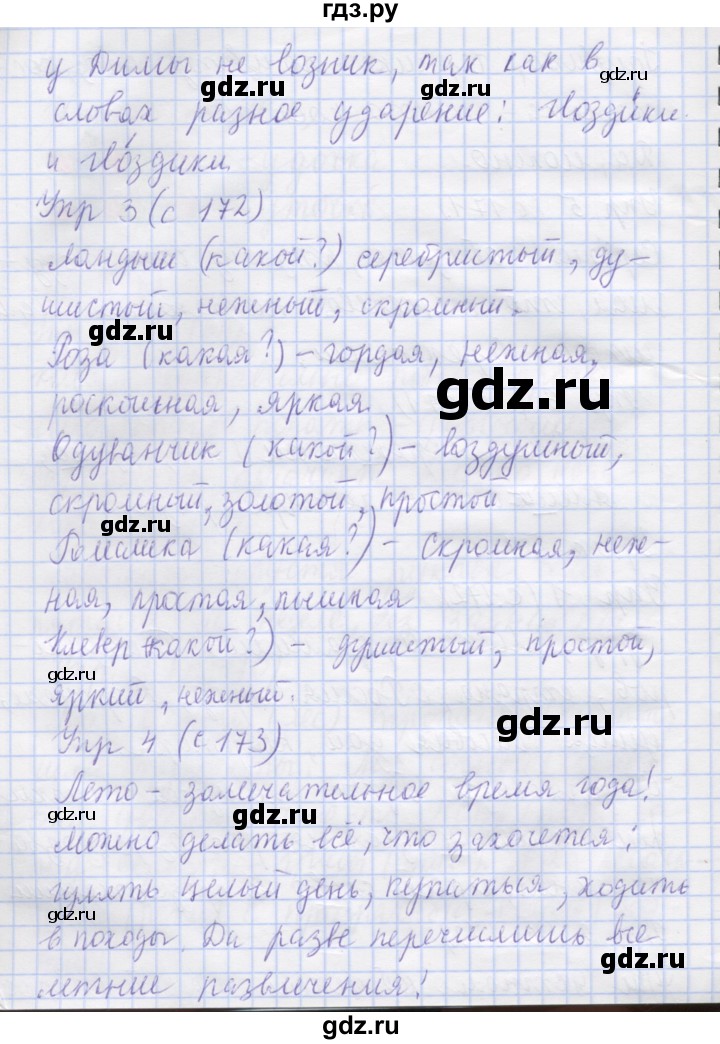 гдз.ру
у Димы не возник, так как в
gdz.ru
gdz.ru
словах разное ударение: гвозди́ки
и гво́здики.
Упр 3 (с 172)
Ландыш (какой?) серебристый, ду-
шистый, нежный, скромный.
gdz.ru
Роза (какая?) – гордая, нежная,
gdz.ru
роскошная, яркая.
Одуванчик (какой?) – воздушный,
скромный, золотой, простой
gdz.ru
Ромашка (какая?) – скромная, неж-
ная, простая, пышная
Клевер (какой?) – душистый, простой,
яркий, нежный.
gdz.ru
Упр 4 (с 173)
Лето – замечательное время года!
gdz.ru
Можно делать всё, что захочется:
гулять целый день, купаться, ходить
gdz.ru
в походы. Да разве перечислишь все
gdz.ru
летние развлечения!
gdz.ru